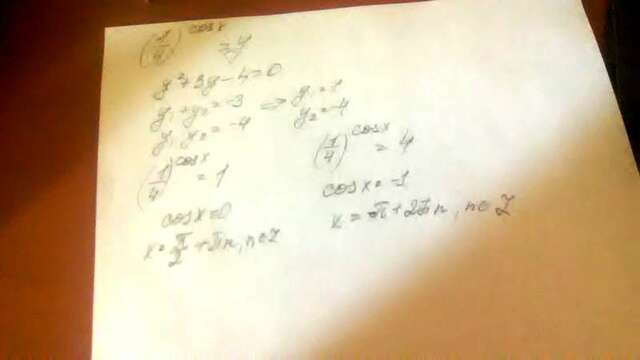 (1/4)^cosx = y
y²+3y-4=0
y₁+y₂=-3 => y₁=1
y₁ y₂=-4 y₂=-4
(1/4)^cosx = 1
cosx=0
x=π/2+πn, n∈Z
(1/4)^cosx = 4
cosx=-1
x=π+2πn, n∈Z